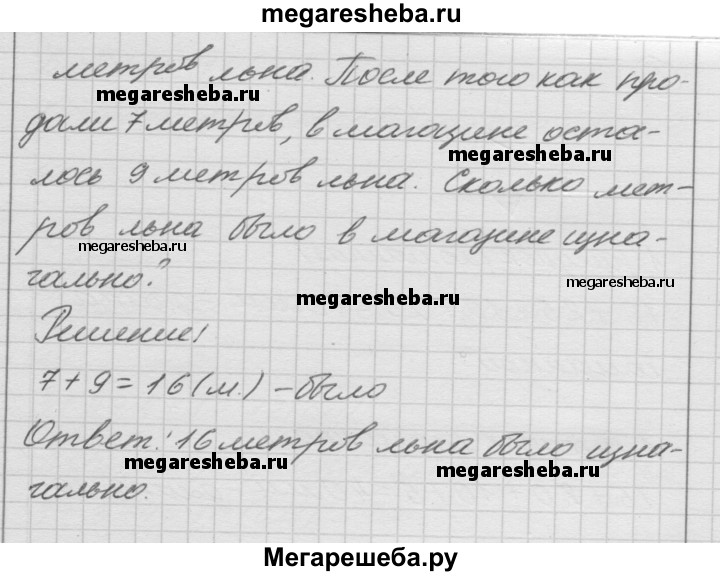 megaresheba.ru
метров льна. После того как про-
megaresheba.ru
дали 7 метров, в магазине оста-
megaresheba.ru
лось 9 метров льна. Сколько мет-
ров льна было в магазине изна-
megaresheba.ru
чально?
megaresheba.ru
megaresheba.ru
Решение:
7+9=16(м.) – было
Ответ: 16 метров льна было изна-
megaresheba.ru
megaresheba.ru
чально.
Мегарешеба.ру